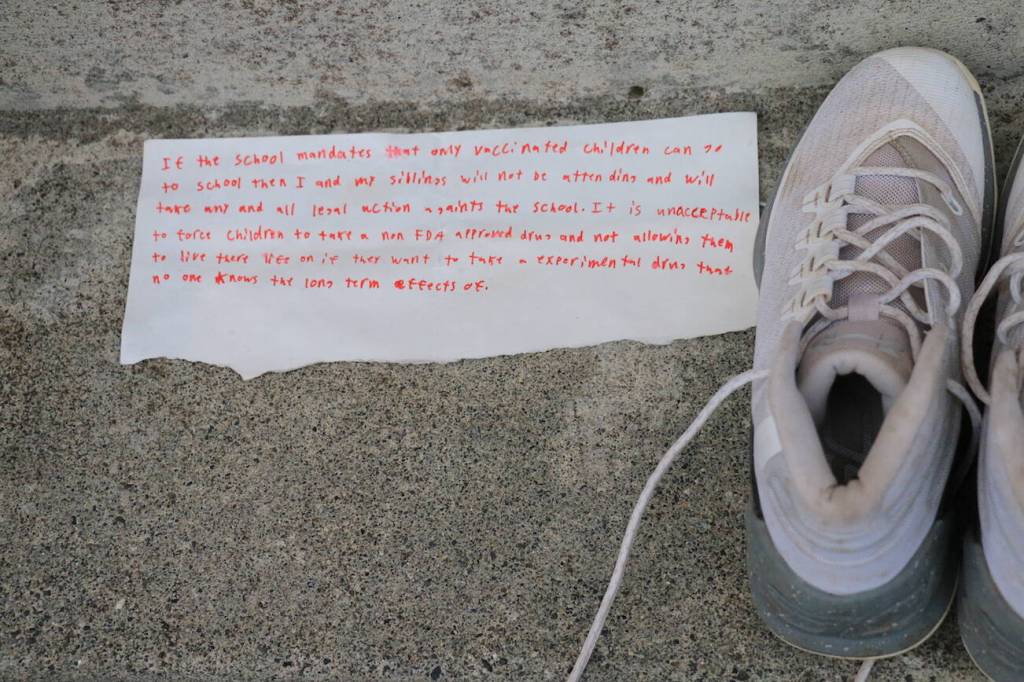 If the school mandates that only vaccinated children can go
to school then I and my siblings will not be attending and will
take any and all legal action againts the school. It is unacceptable
to force children to take a non FDA approved drug and not allowing them
to live there life on if they want to take a experimental drug that
no one knows the long term effects of.